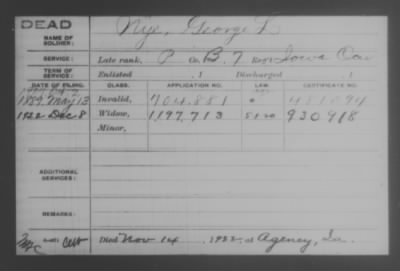 DEAD
NAME OF SOLDIER: Nye, George L.
SERVICE: Late rank, P Co. B, 7 Reg't Iowa Cav
TERM OF SERVICE: Enlisted , 1 Discharged , 1
DATE OF FILING. CLASS. APPLICATION NO. LAW. CERTIFICATE NO.
1889 May 13 Invalid, 704.881
1922 Dec 8 Widow, 1197.713 930918
Minor,
ADDITIONAL SERVICES:
REMARKS:
Died Nov 14, 1922, at Agency, Ia.